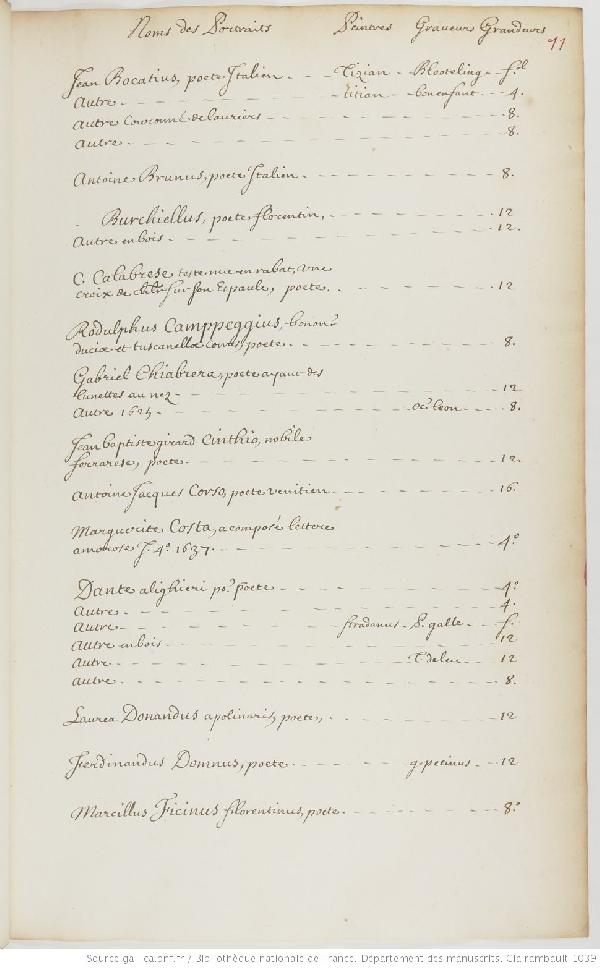 Noms des Portraits Peintres Graveurs Grandeurs
71
Jean Bocatius, poete Italien - Tizian - Blooteling - f.l
Autre - titian - bonenfant - 4.
Autre Couronné de lauriers - 8.
Autre - 8.
Antoine Brunus, poete Italien - 8.
Burchiellus, poete florentin, - 12
Autre en bois - 12.
C. Calabrese teste nue en rabat, une
croix de sur son Epaule, poete - 12
Rodulphus Camppeggius, bonon.
ducia et tuscanella comes, poete - 8.
Gabriel Chiabrera, poete ayant des
lunettes au nez - 12
Autre 1625 - oct. Leon - 8.
Jean baptiste girard Cinthio, nobile
ferrarese, poete - 12.
Antoine Jacques Corso, poete venitien - 16.
Marguerite Costa, a composé lettere
amorose J. 4o 1637. - 4o
Dante alighieri poete - 4o
Autre - 4.
Autre - Stradanus - P. galle - f.
Autre en bois - 12
Autre - T. de leu - 12
Autre - 8.
Laurea Donandus apolinaris, poete, - 12
Ferdinandus Domnus, poete - g. petinus - 12
Marcillus Ficinus florentinus, poete - 8o
Source gallica.bnf.fr / Bibliothèque nationale de France. Département des manuscrits. Clairambault 1039